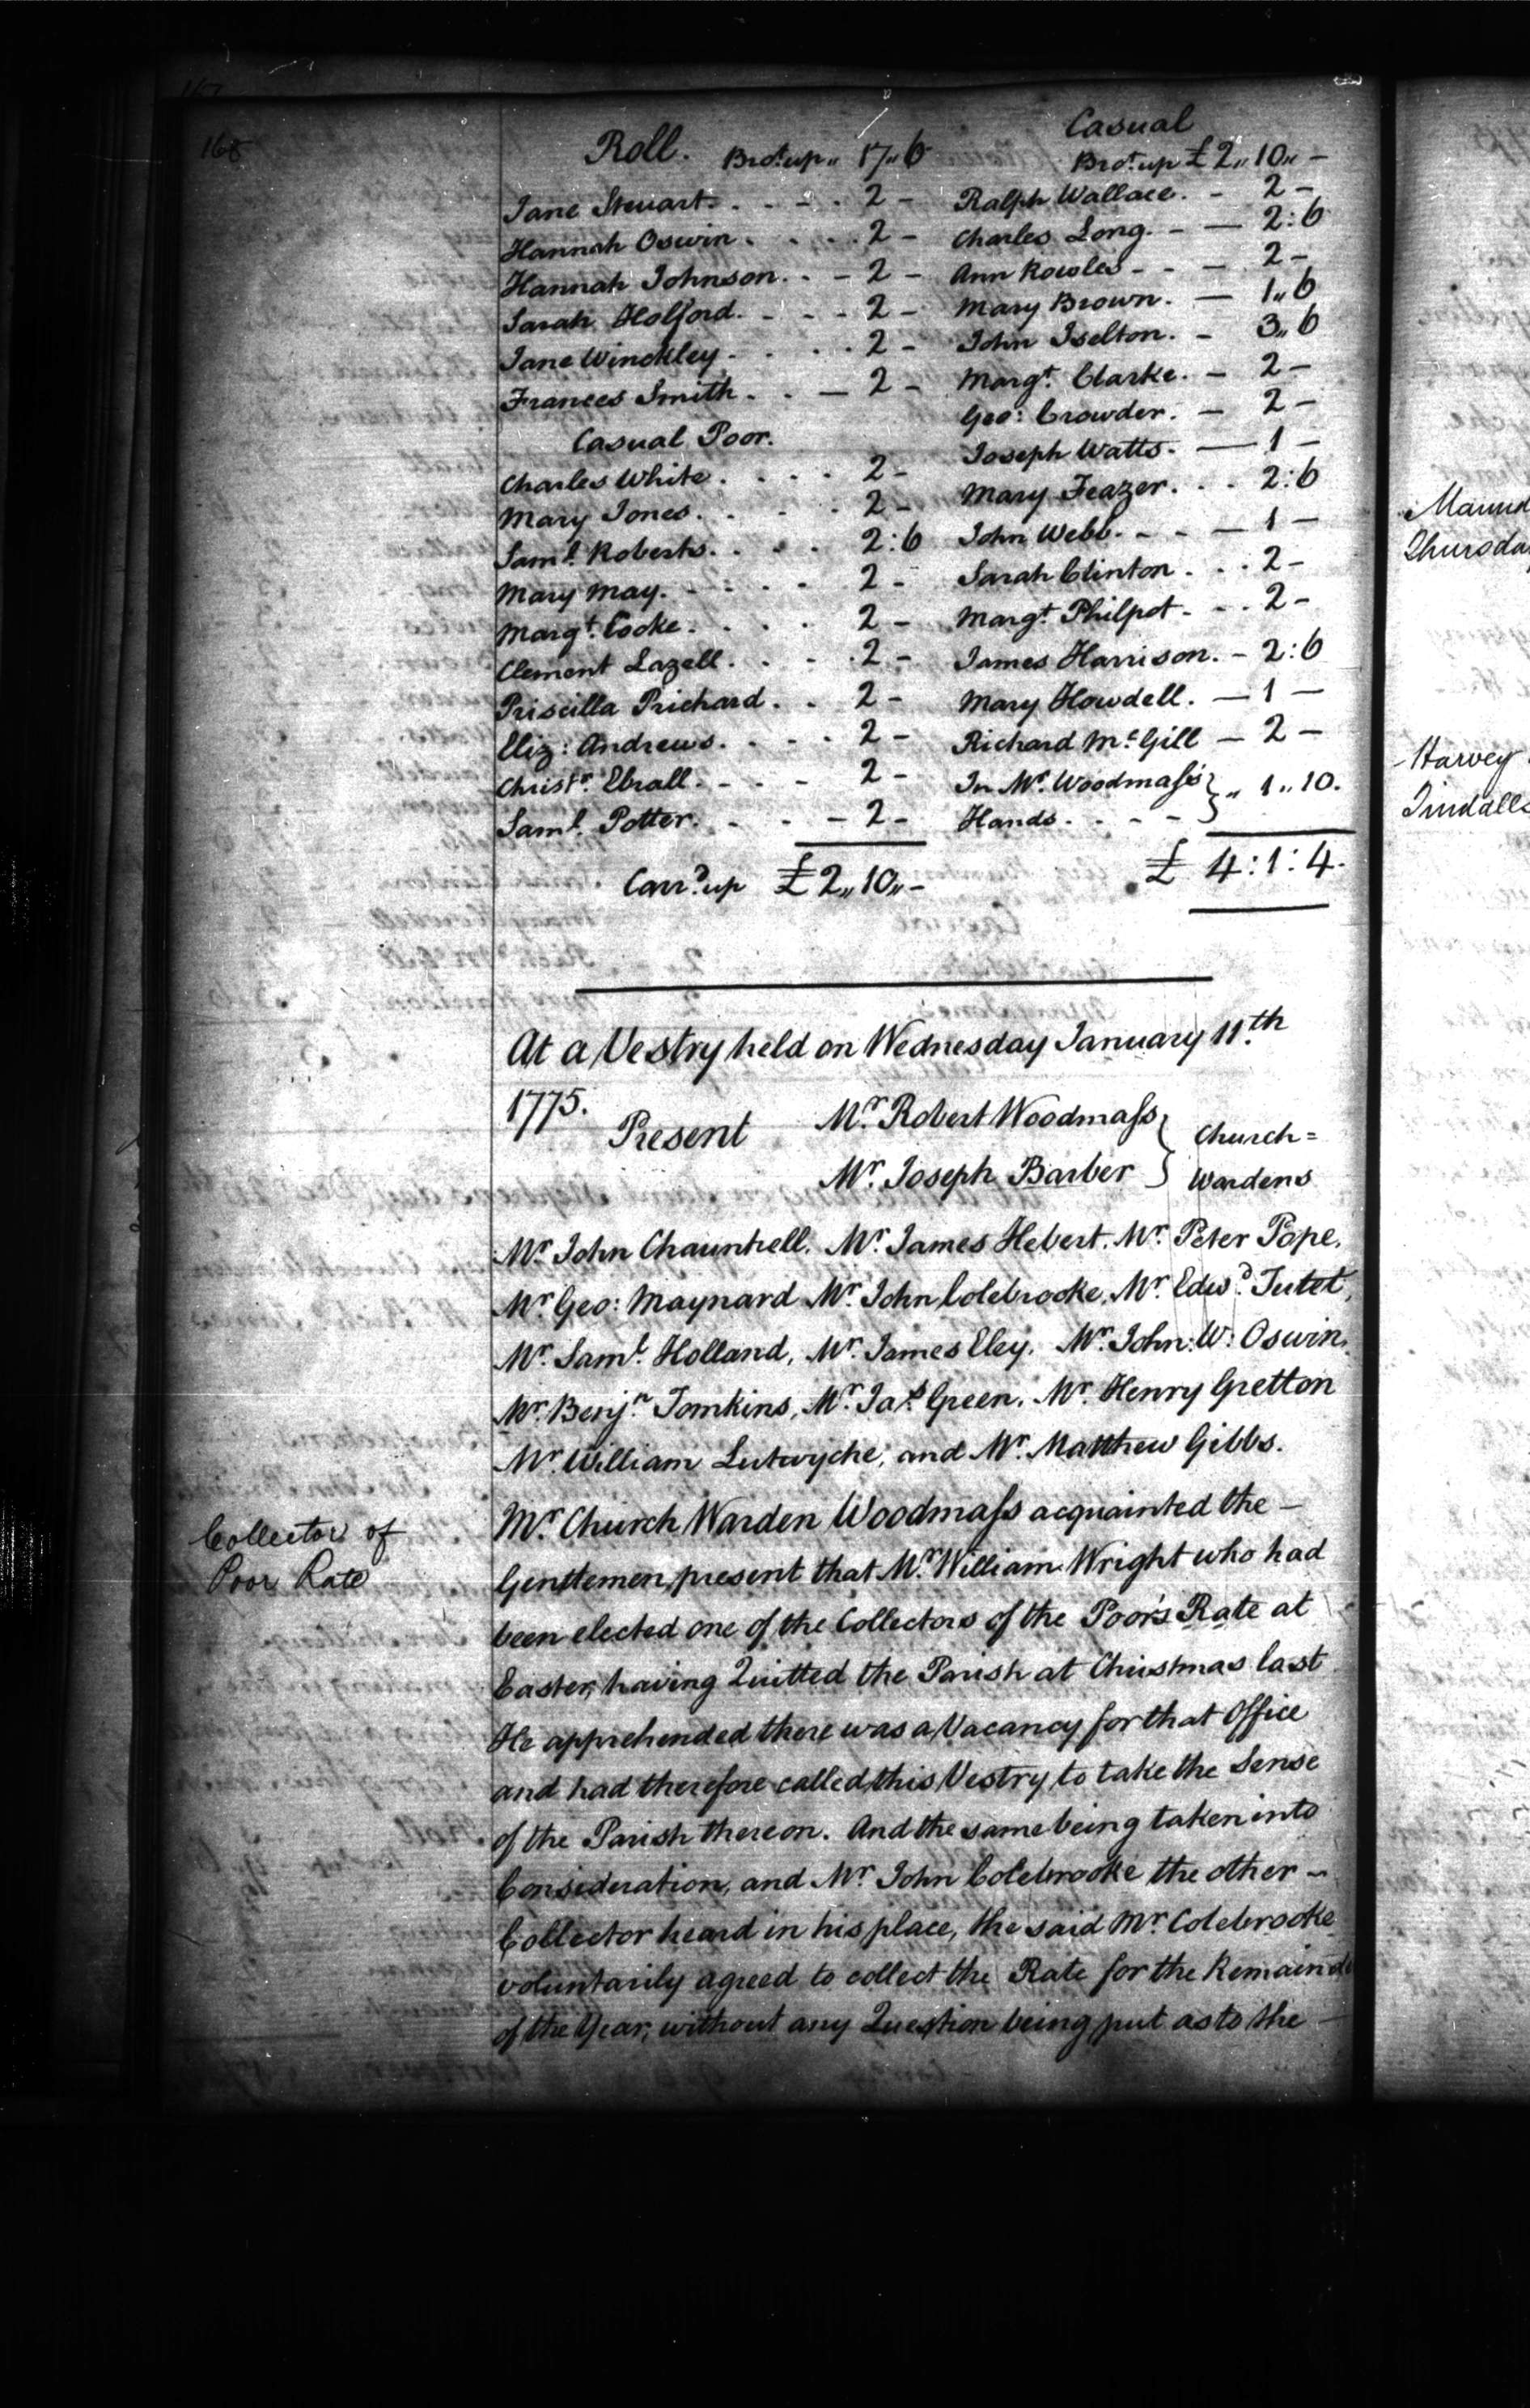 168
Roll. Brot. up „ 17„6
Jane Steuart. . . - . 2 -
Hannah Oswin . . . . 2 -
Hannah Johnson . . - 2 -
Sarah Holford. - . - . 2 -
Jane Winckley . . . . 2 -
Frances Smith . . — 2 -
Casual Poor.
Charles White . . . . 2 -
Mary Jones. . . . . 2 -
Saml. Roberts. . . . 2:6
Mary May. - . - . - 2 -
Margt. Cocke. . . . . 2 -
Clement Lazell . . - . 2 -
Priscilla Prichard . . 2 -
Eliz: Andrews. . . . . 2 -
Christr. Ebrall. - . - 2 -
Saml. Potter. . - - 2 -
Carrd. up £2„10„-
Casual
Brot. up £2„10„-
Ralph Wallace. - 2 -
Charles Long. - — 2:6
Ann Rowles - - — 2 -
Mary Brown. — 1„6
John Iselton. - 3„6
Margt. Clarke. - 2 -
Geo: Crowder. — 2 -
Joseph Watts. — 1 —
Mary Feazer. . . 2:6
John Webb. - - — 1 —
Sarah Clinton . . . 2 -
Margt. Philpot - . . 2 -
James Harrison. - 2:6
Mary Howdell. — 1 —
Richard McGill — 2 —
In Mr. Woodmass's } „ 1„10.
Hands. - - -
£ 4:1:4.
At a Vestry held on Wednesday January 11.th
1775.
Present Mr. Robert Woodmass } Church=
Mr. Joseph Barber } Wardens
Mr. John Chauntrell. Mr. James Hebert. Mr. Peter Pope.
Mr Geo: Maynard Mr. John Colebrooke. Mr. Edwd. Tutet,
Mr. Saml. Holland, Mr. James Eley. Mr. John: W: Oswin.
Mr. Benjn. Tomkins, Mr. Jas. Green. Mr. Henry Gretton
Mr. William Lutwyche, and Mr. Matthew Gibbs.
Collector of
Poor Rate
Mr. Church Warden Woodmass acquainted the -
Gentlemen present that Mr. William Wright who had
been elected one of the Collectors of the Poor's Rate at
Easter, having Quitted the Parish at Christmas last
He apprehended there was a Vacancy for that Office
and had therefore called this Vestry to take the Sense
of the Parish thereon. And the same being taken into
Consideration, and Mr. John Colebrooke the other -
Collector heard in his place, the said Mr. Colebrooke
voluntarily agreed to collect the Rate for the
of the Year, without any Question being put as to the -
Harvey